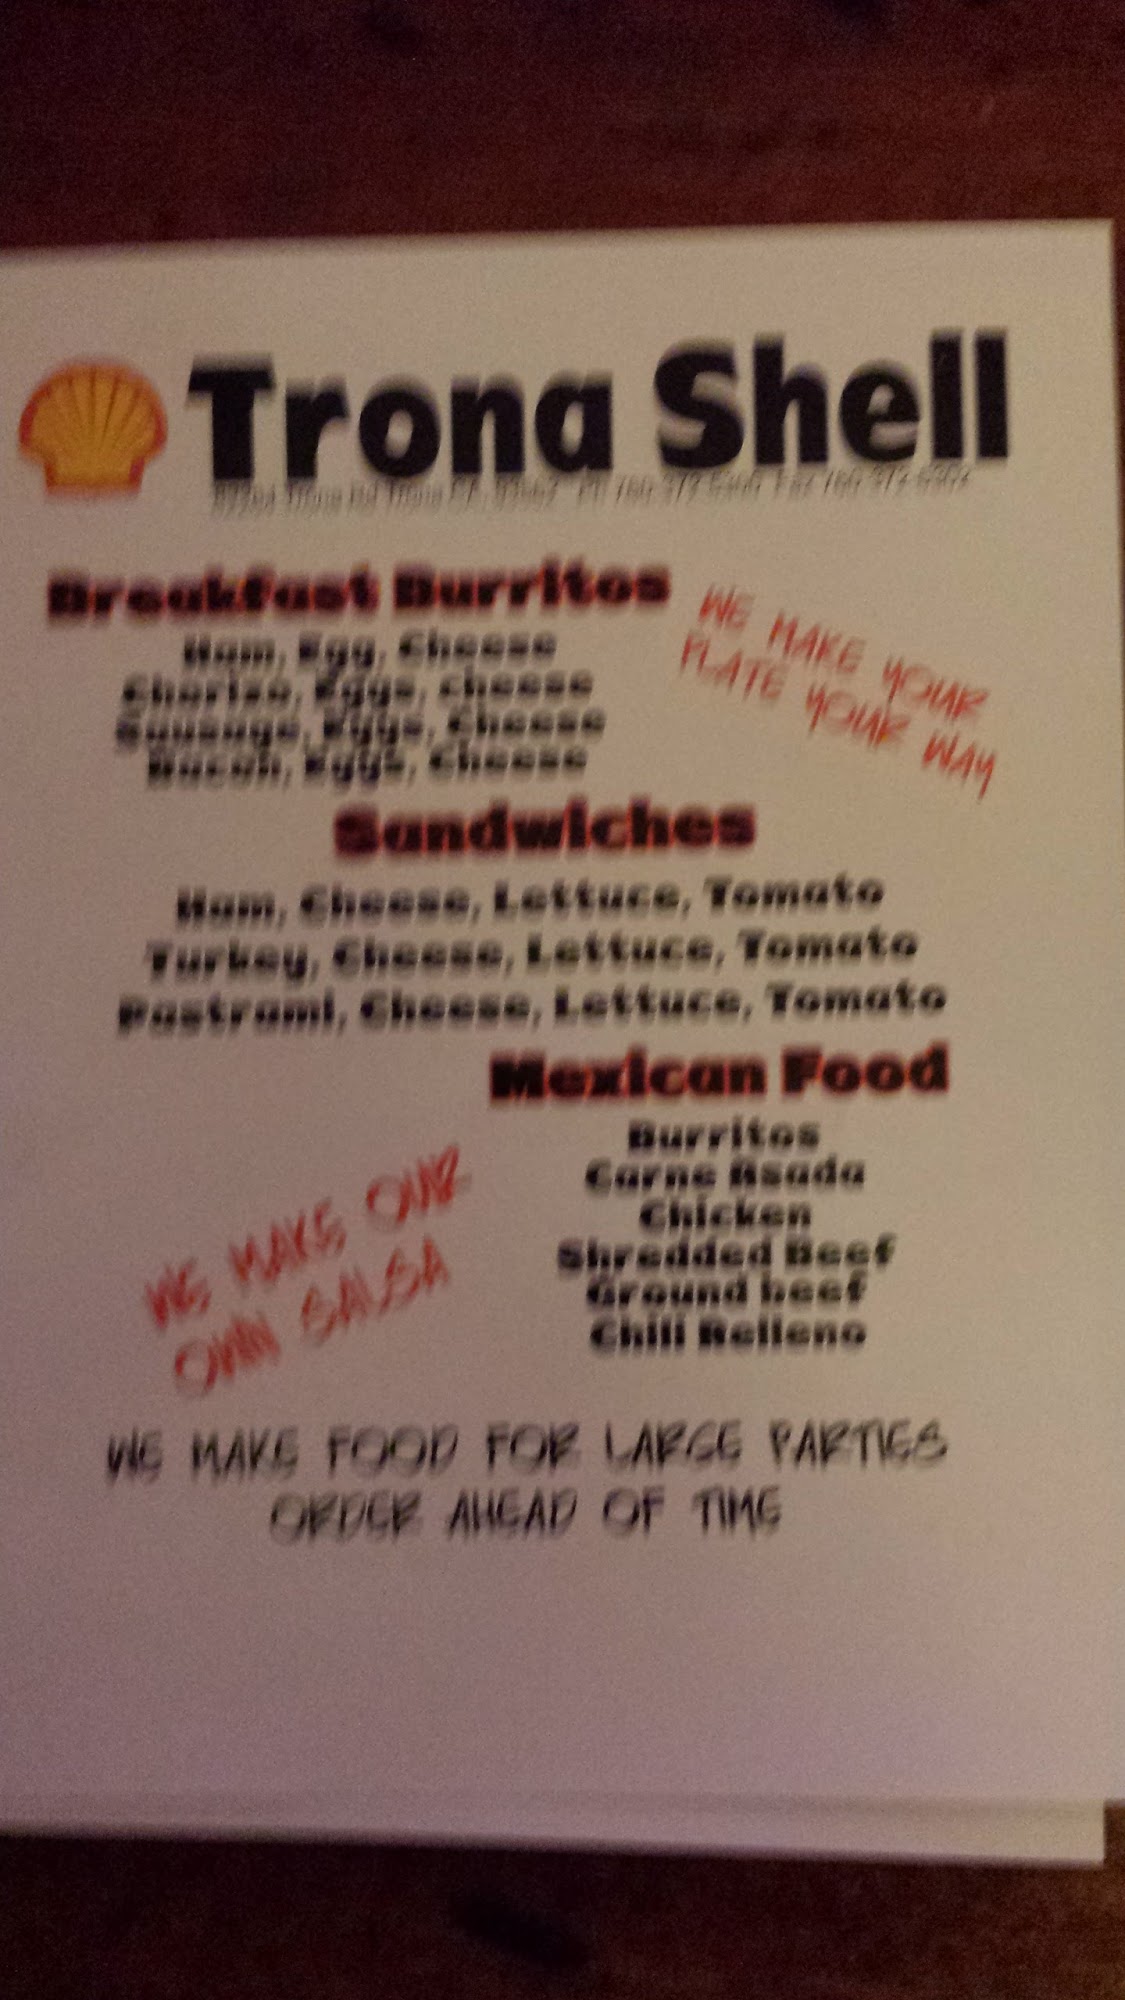 Trona Shell
Trona Rd Trona CA, 93562 Ph 760 372 Fax 760 372
Breakfast Burritos
Ham, Egg, Cheese
Chorizo, Eggs, cheese
Sausage, Eggs, Cheese
Bacon, Eggs, Cheese
WE MAKE YOUR
PLATE YOUR WAY
Sandwiches
Ham, Cheese, Lettuce, Tomato
Turkey, Cheese, Lettuce, Tomato
Pastrami, Cheese, Lettuce, Tomato
Mexican Food
Burritos
Carne Asada
Chicken
Shredded Beef
Ground beef
Chili Relleno
WE MAKE OUR
OWN SALSA
WE MAKE FOOD FOR LARGE PARTIES
ORDER AHEAD OF TIME